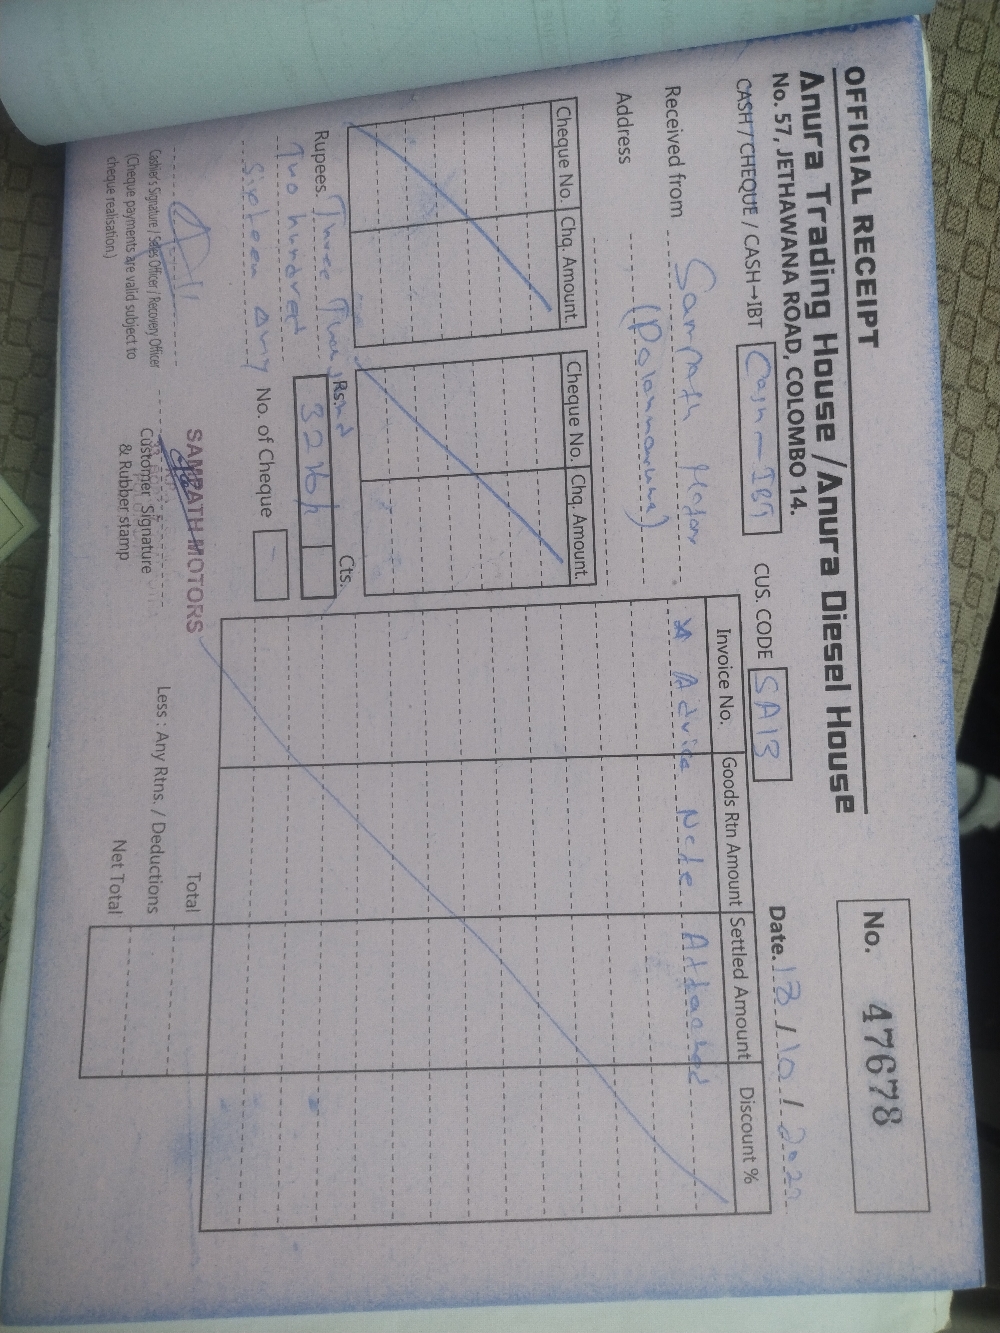 OFFICIAL RECEIPT
Anura Trading House / Anura Diesel House
No. 57, JETHAWANA ROAD, COLOMBO 14.
No. 47678
CASH / CHEQUE / CASH→IBT Cash - IBT
CUS. CODE SA13
Date. 13 / 10 / 2022
Received from Sampath Motors
Address
Cheque No. Chq. Amount.
Cheque No. Chq. Amount.
Invoice No. Goods Rtn Amount Settled Amount Discount %
Advice Note Attached
Rupees. Three Thousand
Two hundred
Sixteen Only
Rs. 3216/-
Cts.
No. of Cheque -
Cashier's Signature / Sales Officer / Recovery Officer
(Cheque payments are valid subject to
cheque realisation.)
SAMPATH MOTORS
Customer Signature
& Rubber stamp
Total
Less : Any Rtns. / Deductions
Net Total